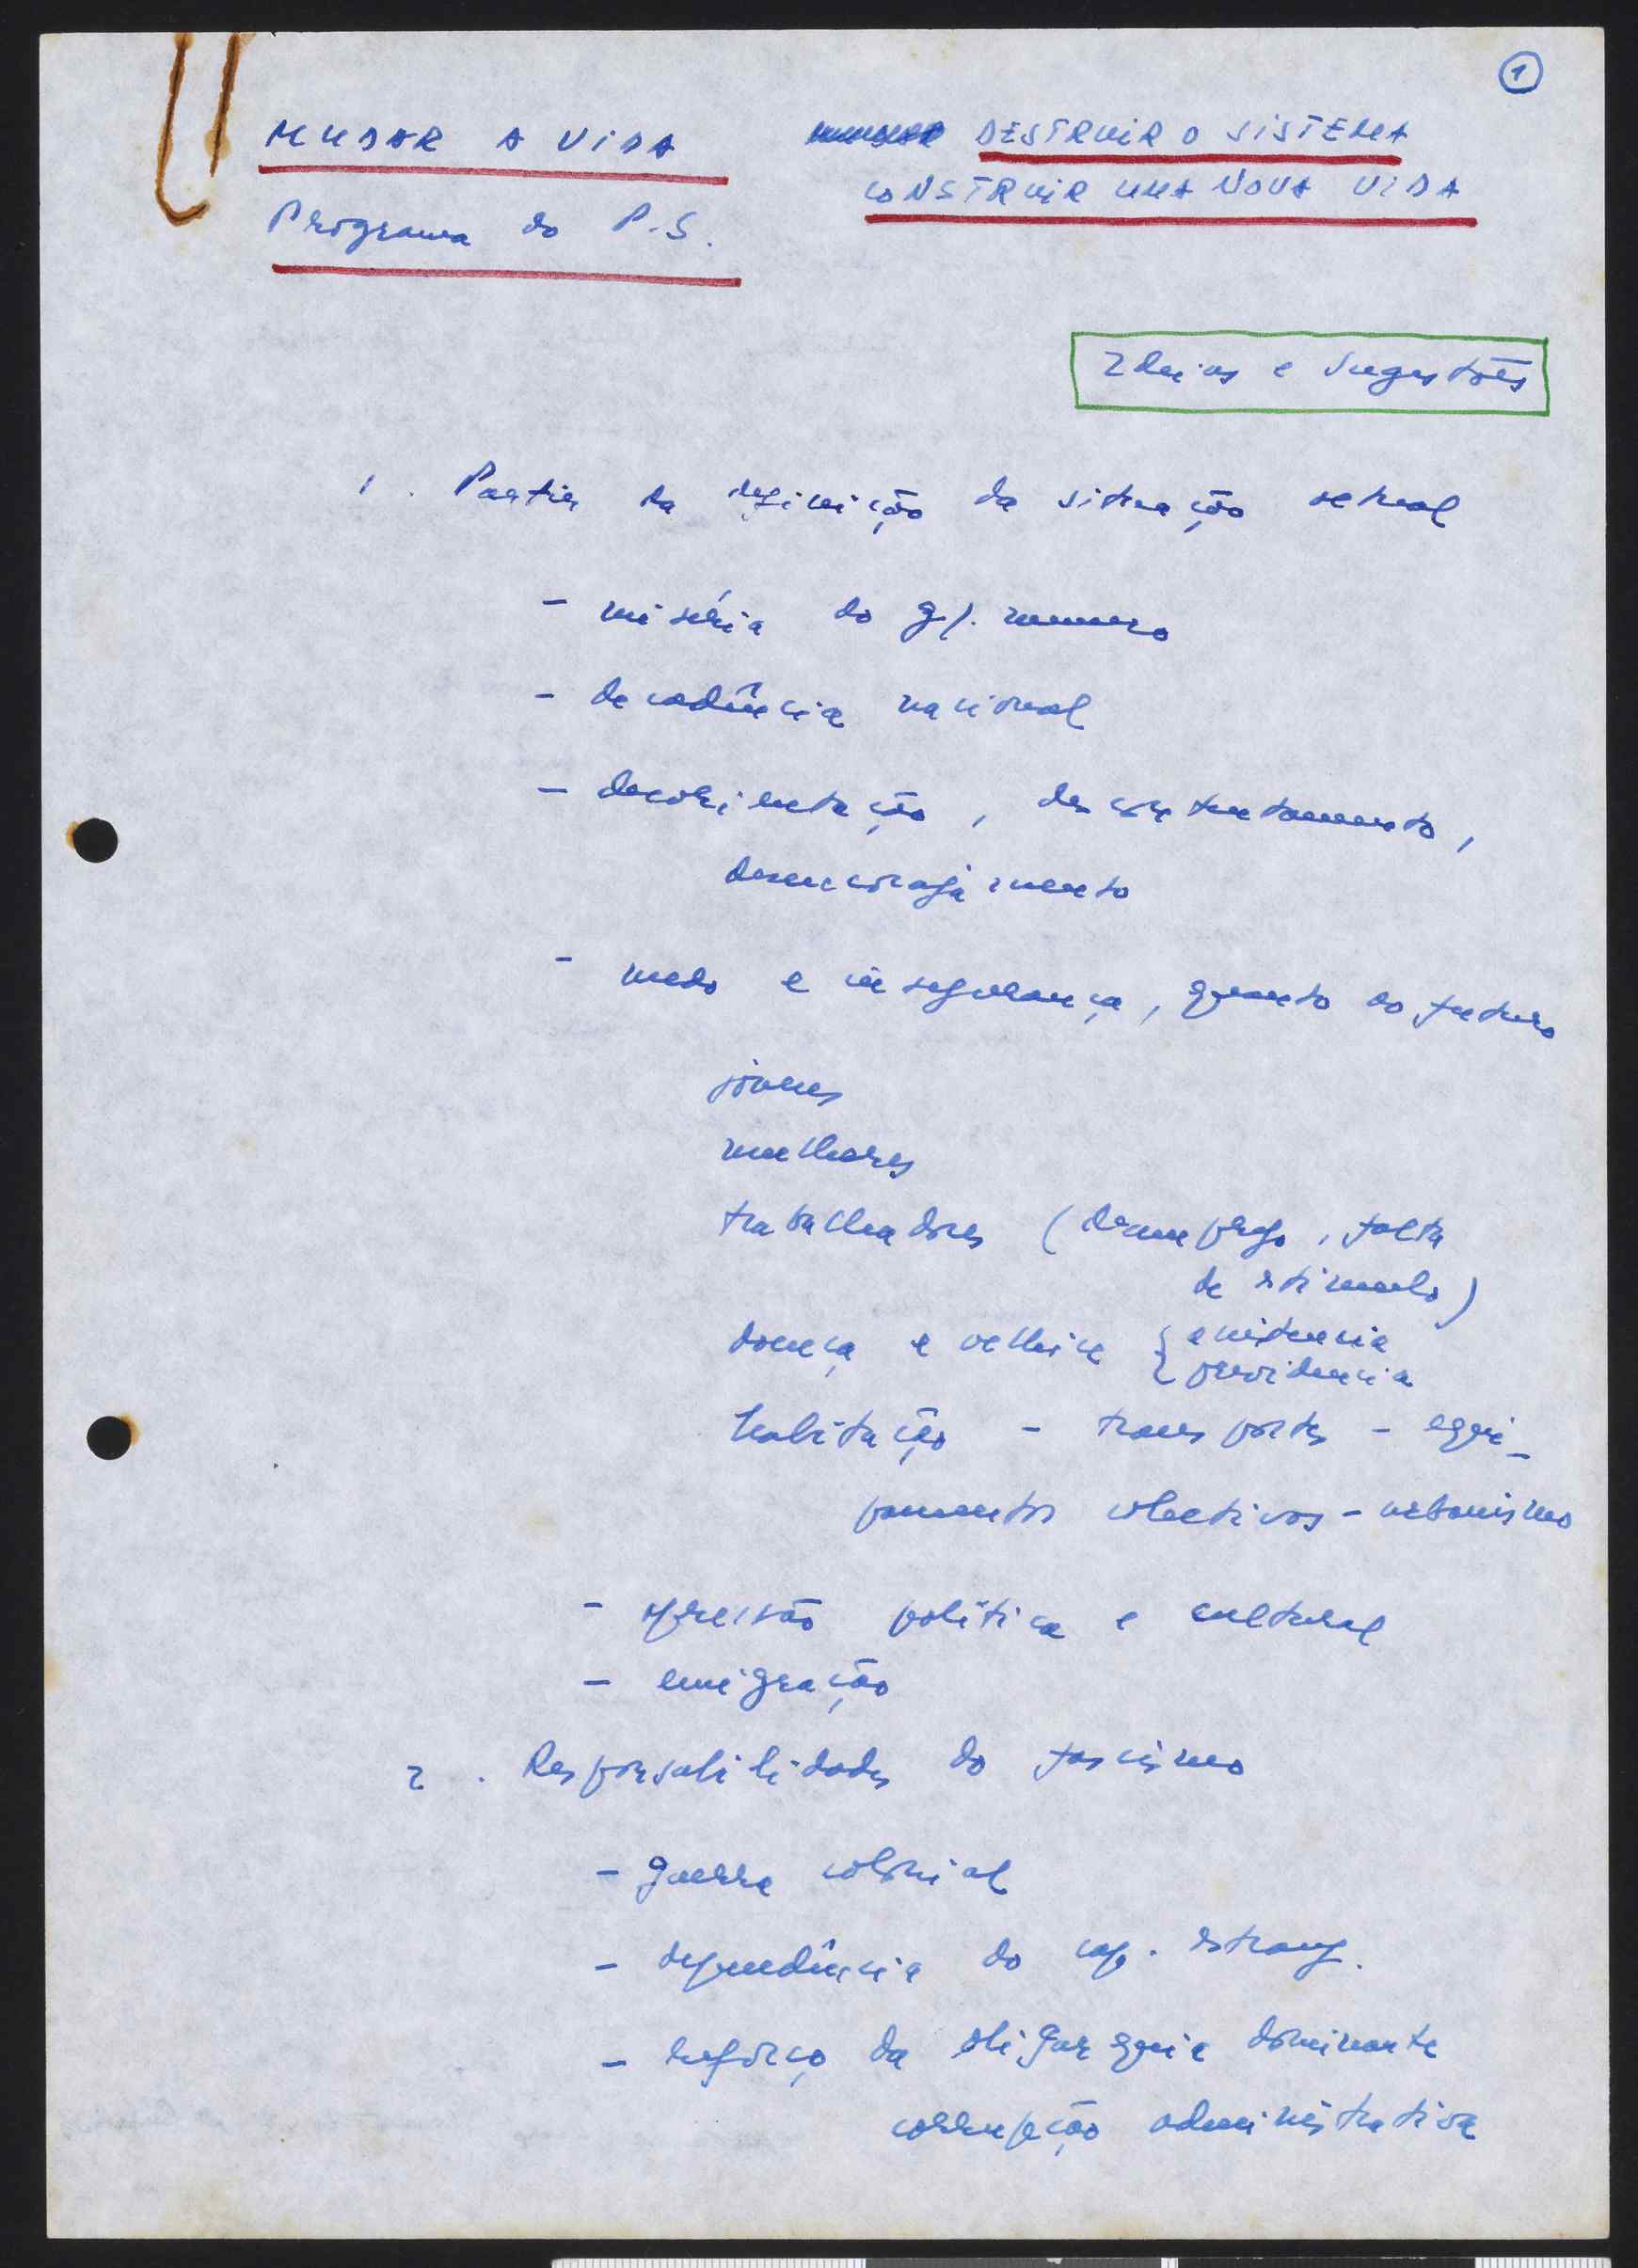 1
MUDAR A VIDA
Programa do P.S.
DESTRUIR O SISTEMA
CONSTRUIR UMA NOVA VIDA
Ideias e Sugestões
1. Partir da definição da situação actual
- miséria do gr. numero
- decadência nacional
- desorientação, descontentamento,
desencorajamento
- medo e insegurança, quanto ao futuro
jovens
mulheres
trabalhadores (desemprego, falta
de estimulo)
doença e velhice { assistencia
previdencia
habitação - transportes - equi-
pamentos colectivos - urbanismo
- opressão política e cultural
- emigração
2. Responsabilidades do fascismo
- guerra colonial
- dependência do cap. estrang.
- reforço da oligarquia dominante
corrupção administrativa